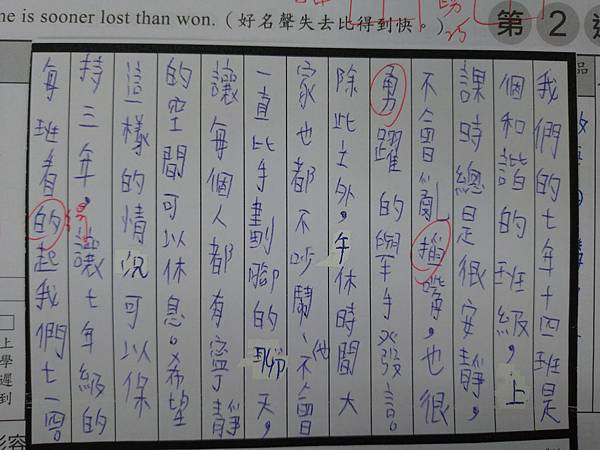 ne is sooner lost than won.(好名聲失去比得到快。)
第2
我們的七年十四班是
個和諧的班級,上
課時總是很安靜,
不會亂插嘴,也很
勇躍的舉手發言。
除此之外,午休時間大
家也都不吵鬧、也不會
一直比手劃腳的聊天,
讓每個人都有寧靜
的空間可以休息。希望
這樣的情況可以保
持三年,讓七年級的
每班看的起我們七一四
上
學
遲
到
形容